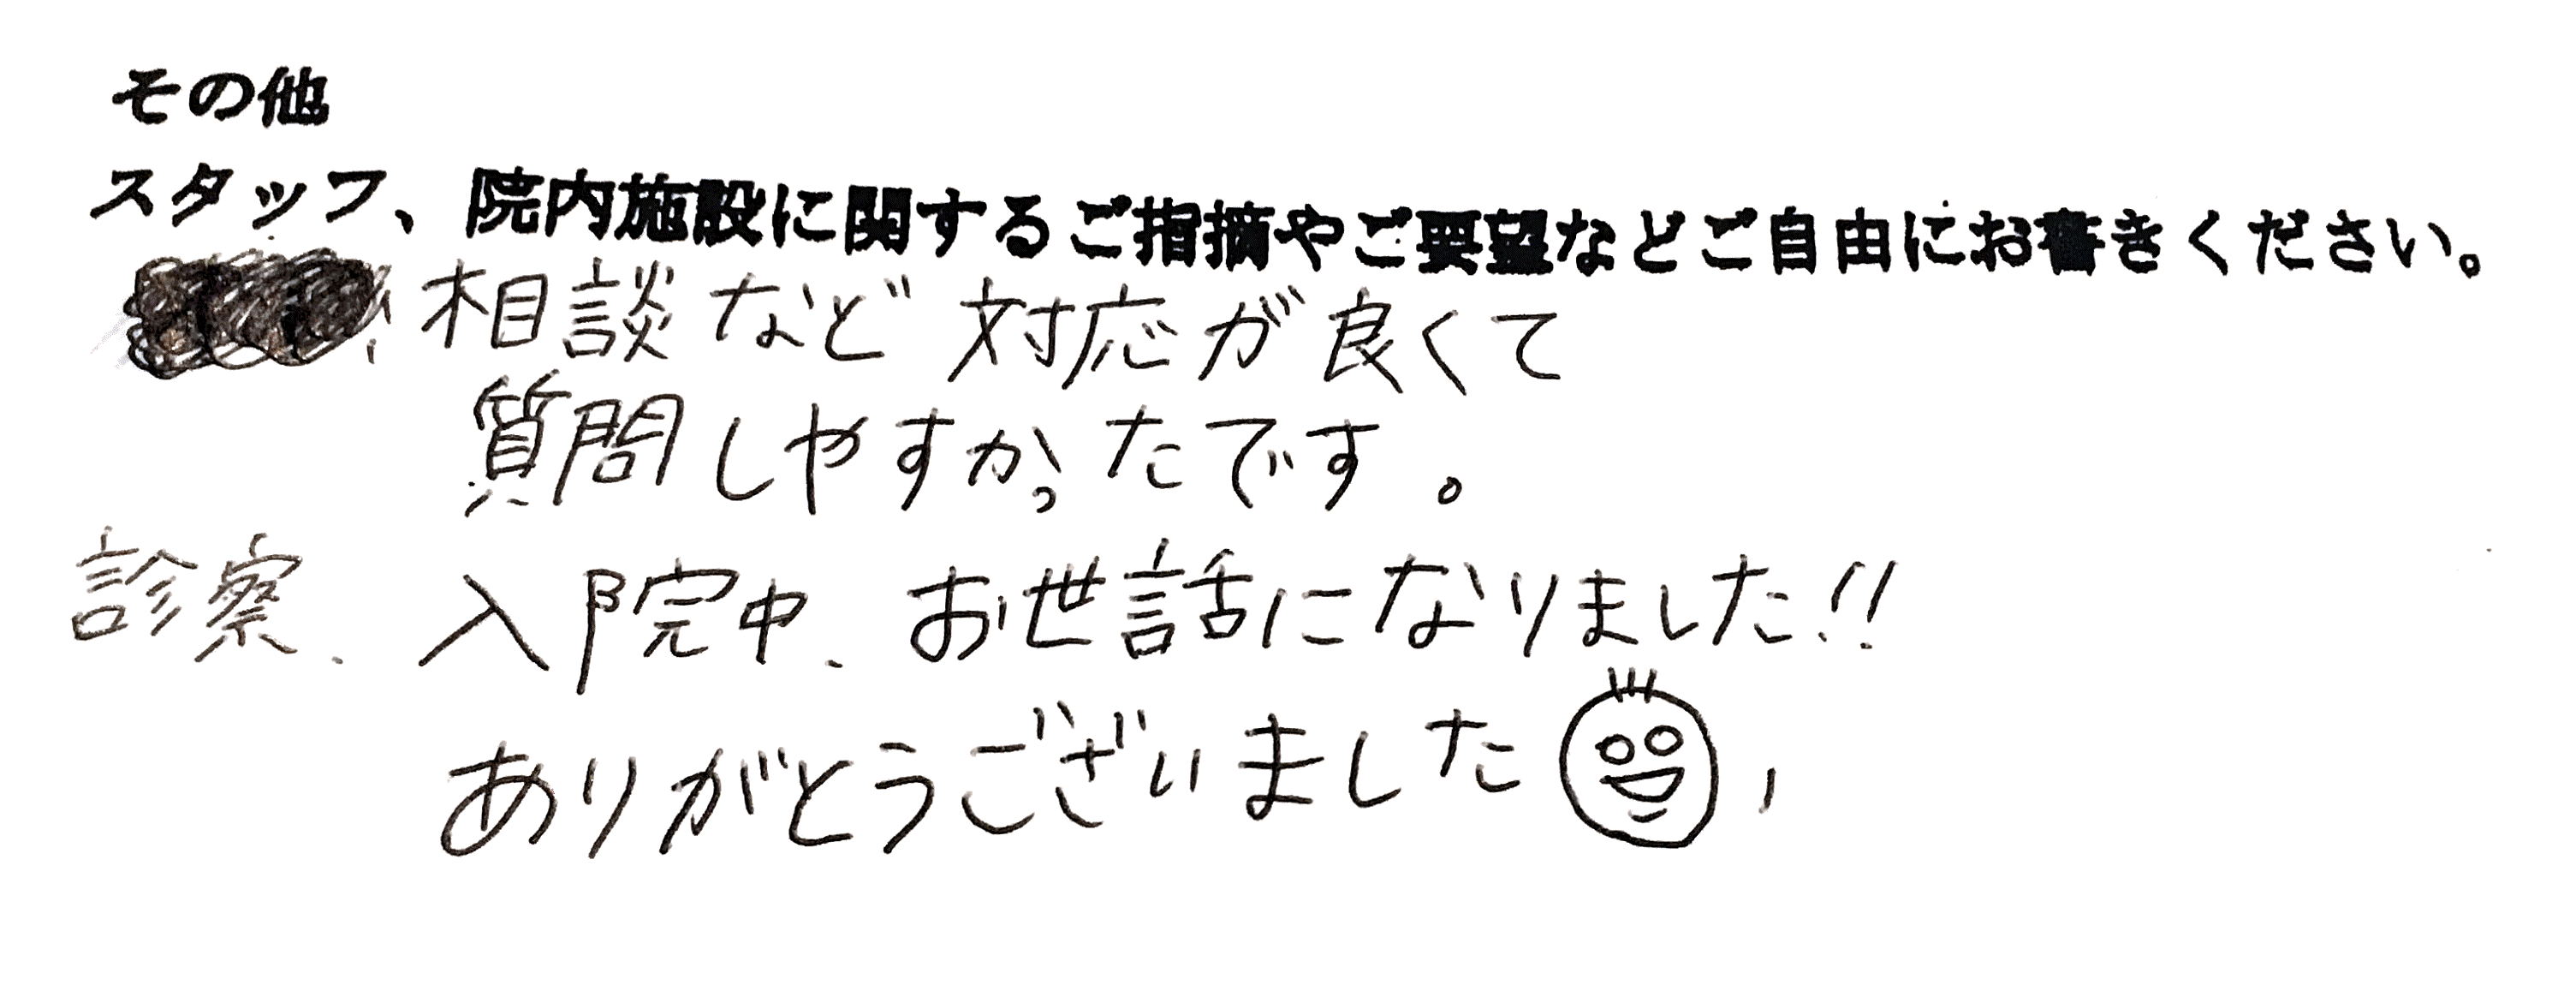 その他
スタッフ、院内施設に関するご指摘やご要望などご自由にお書きください。
相談など対応が良くて
質問しやすかったです。
診察、入院中、お世話になりました!!
ありがとうございました